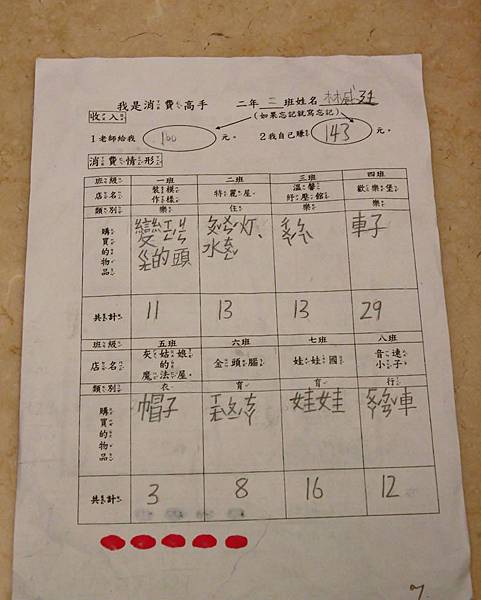 我是消費高手 二年二班姓名
(如果忘記就寫忘記)
收入
1 老師給我 100 元。 2 我自己賺! 143 元。
消費情形
班級 一班 二班 三班 四班
店名 裝模作樣 特麗屋 溫馨紓壓館 歡樂堡
類別 樂 住 樂 樂
購買的物品 車子
共計 11 13 13 29
班級 五班 六班 七班 八班
店名 灰姑娘的魔法屋 金頭腦 娃娃國 音速小子
類別 衣 育 育 行
購買的物品 帽子 娃娃
共計 3 8 16 12